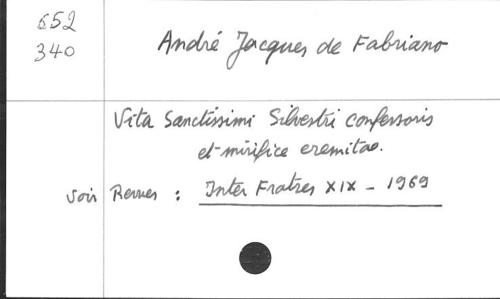 652
340
André Jacques de Fabriano
Vita Sanctissimi Silvestri confessoris
et mirifice eremitae.
Voir Revues : Inter Fratres XIX - 1969